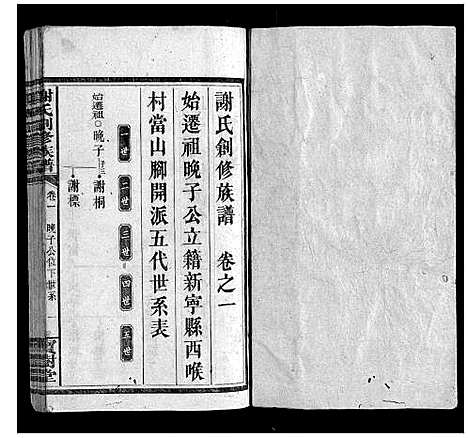 謝氏創修族譜 卷之一
始遷祖晚子公立籍新寧縣西喉
村當山腳開派五代世系表
一世 二世 三世 四世 五世
始遷祖 晚子 子二 謝桐
謝標
謝氏創修族譜 卷一 晚子公位下世系 一 寶樹堂